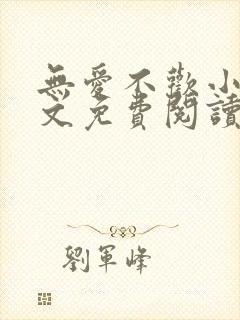 無愛不歡小
文免費閱讀
劉軍峰